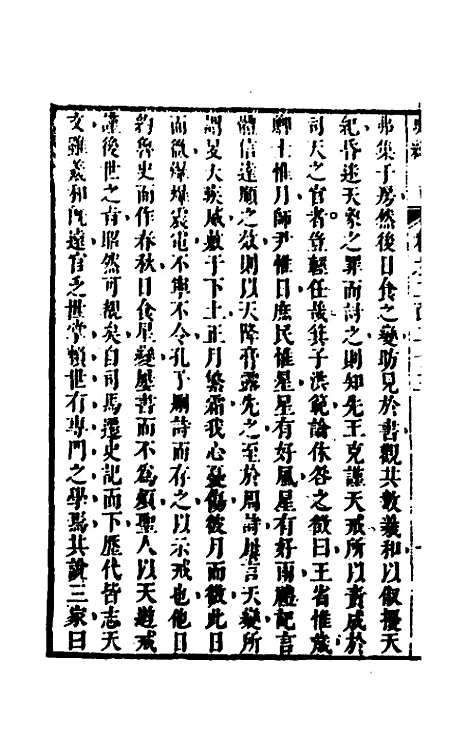 弗集于房然後日食之變昉見於書觀其數羲和以俶擾天
紀昏迷天象之罪而討之則知先王克謹天戒所以責成於
司天之官者豈輕任哉箕子洪範論休咎之徵曰王省惟歲
卿士惟月師尹惟日庶民惟星星有好風星有好雨禮記言
體信達順之效則以天降膏露先之至於周詩屢言天變所
謂旻天疾威敷于下土正月繁霜我心憂傷彼月而微此日
而微爗爗震電不寧不令孔子刪詩而存之以示戒也他日
約魯史而作春秋日食星變屢書而不為煩聖人以天道戒
謹後世之旨昭然可覩矣自司馬遷史記而下歷代皆志天
文雖羲和旣遠官乏世掌賴世有專門之學焉其說三家曰